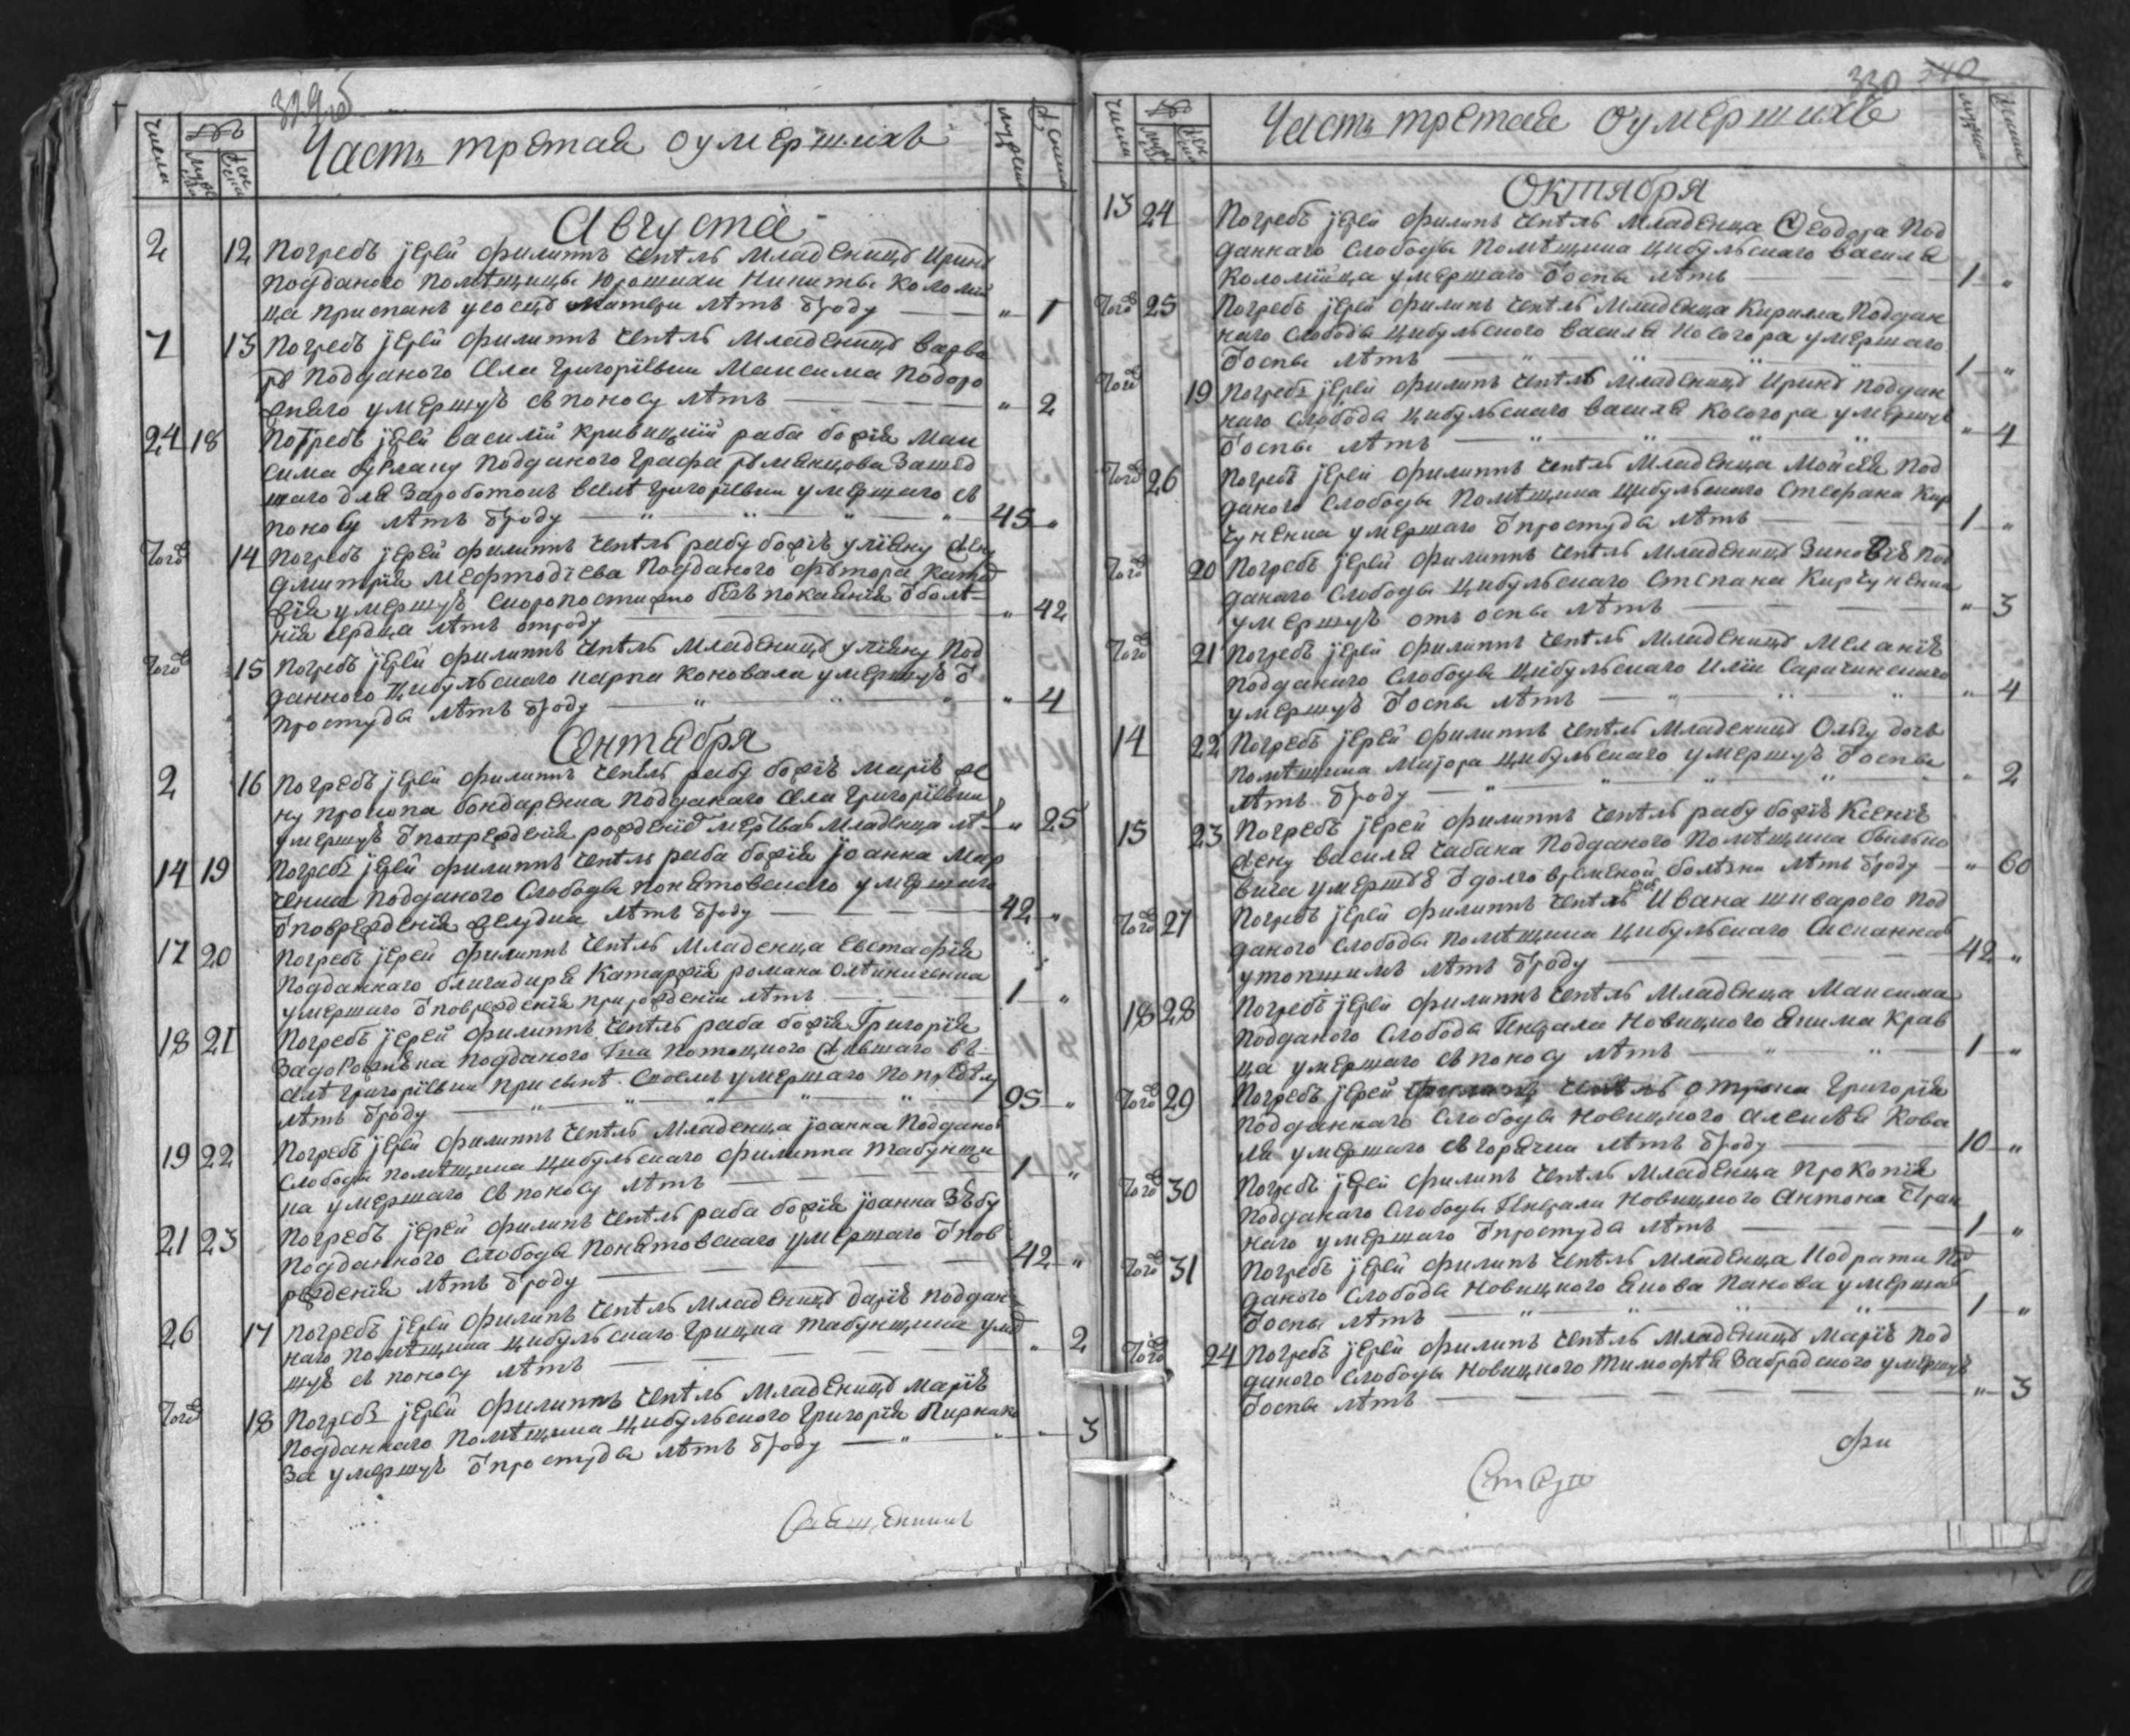 329об
числа
№
Муж
Жен
Часть третая оумершихъ
Августа
2 12 Погребъ іерей филиппъ чепѣль Младеницу Ирину
подданого Помѣщицы Юрошихи Никиты Коломій
ца приспану усосцу матери лѣтъ ѿроду " 1
7 13 Погребъ іерей филиппъ чепѣль Младеницу варва
ру Подданого Села Григорїевки Максима Подоро
жнего умершую съ поносу лѣтъ " 2
24 18 Погребъ іерей василій кривицкій раба божія Мак
сима Подданого Графа румянцова Зашед
шаго для Зароботокъ вселѣ Григорїевки умершаго съ
поносу лѣтъ ѿроду 45 "
Тогож 14 Погребъ іерей филиппъ чепѣль рабу божію уліяну жену
дмитрія Мефтодїева Подданого
умершую скоропостижно безъ покаянія ѿ болѣ
нія сердца лѣтъ отроду " 42
Тогож 15 Погребъ іерей филиппъ чепѣль Младеницу уліяну Под
данного Цибульского карпа Коновала умершую ѿ
простуды лѣтъ ѿроду " 4
Сентября
2 16 Погребъ іерей филиппъ чепѣль рабу божію Марію же
ну прокопа бондаренка Подданаго Села Григорїевки
умершую ѿ рожденію мертва Младенца лѣ " 25
14 19 Погребъ іерей филиппъ чепѣль раба божія іоанна Мар
ченка Подданого Слободы понятовского умершаго
ѿ поврежденія желудка лѣтъ ѿроду 42 "
17 20 Погребъ іерей филиппъ чепѣль Младенца Евстафія
Подданнаго бригадира Катаржія романа Олѣйниченка
умершаго ѿ поврежденія прирожденіи лѣтъ 1 "
18 21 Погребъ іерей филиппъ чепѣль раба божія Григорія
Задорожнѣка подданого потоцкого жившаго въ
селѣ Григорїевки при своемъ умершаго
лѣтъ ѿроду 95 "
19 22 Погребъ іерей филиппъ чепѣль Младенца іоанна Подданого
слободы помѣщика Цибульскаго филиппа табунщи
ка умершаго съ поносу лѣтъ 1 "
21 23 Погребъ іерей филипъ чепѣль раба божія іоанна
подданного слободы понятовскаго умершаго ѿ пов
режденія лѣтъ ѿроду 42 "
26 17 Погребъ іерей филипъ чепѣль Младеницу дарію поддан
наго помѣщика цибульскаго Грицка табунщика умер
шую съ поносу лѣтъ " 2
Тогож 18 Погребъ іерей филиппъ чепѣль Младеницу Марію
подданнаго помѣщика цибульского Григорія
за умершую ѿ простуды лѣтъ ѿроду " 3
Священникъ
330 340
числа
№
Часть третая Оумершихъ
Октября
13 24 Погребъ іерей филипъ чепѣль Младенца Ѳеодора Под
даннаго слободы Помѣщика цибульскаго василя
Коломійца умершаго ѿ оспы лѣтъ 1 "
Тогож 25 Погребъ іерей филипъ чепѣль Младенца Кирила Поддан
наго слободы цибульского василя Косогора умершаго
ѿ оспы лѣтъ 1 "
Тогож 19 Погребъ іерей филипъ чепѣль Младеницу Ирину поддан
наго слободы цибульскаго василя Косогора умершую
ѿ оспы лѣтъ " 4
Тогож 26 Погребъ іерей филиппъ чепѣль Младенца Мойсея Под
даного слободы Помѣщика цибульскаго Стефана Кир
чуненка умершаго ѿ простуды лѣтъ 1 "
Тогож 20 Погребъ іерей филиппъ чепѣль Младеницу Зиновію Под
данаго слободы цибульскаго Степана Кирчуненка
умершую отъ оспы лѣтъ " 3
Тогож 21 Погребъ іерей филиппъ чепѣль Младеницу Меланію
подданаго слободы цибульскаго Иліи Сарачинскаго
умершую ѿ оспы лѣтъ " 4
14 22 Погребъ іерей филиппъ чепѣль Младеницу Ольгу дочь
помѣщика Маіора цибульскаго умершую ѿ оспы
лѣтъ ѿроду " 2
15 23 Погребъ іерей филиппъ чепѣль рабу божію Ксенію
жену василя чабана Подданого Помѣщика
вича умершую ѿ долговременой болѣзни лѣтъ ѿроду " 60
Тогож 27 Погребъ іерей филиппъ чепѣль Ивана шкварого под
даного слободы помѣщика цибульскаго
утопшимъ лѣтъ ѿроду 42 "
18 28 Погребъ іерей филиппъ чепѣль Младенца Максима
подданого слободы Генерала Новицкого Якима Крав
ца умершаго съ поносу лѣтъ 1 "
Тогож 29 Погребъ іерей филиппъ чепѣль отрока Григорія
подданнаго слободы новицкого Алексѣя Кова
ля умершаго съ горячки лѣтъ ѿроду 10 "
Тогож 30 Погребъ іерей филипъ чепѣль Младенца Прокопія
подданаго слободы Генерала новицкого Антона
наго умершаго ѿ простуды лѣтъ 1 "
Тогож 31 Погребъ іерей филипъ чепѣль Младенца Кодрата Под
даного слободы новицкого Якова Панова умершаго
ѿ оспы лѣтъ 1 "
Тогож 24 Погребъ іерей филипъ чепѣль Младеницу Марію Под
даного слободы новицкого тимофѣя умершую
ѿ оспы лѣтъ " 3
фи